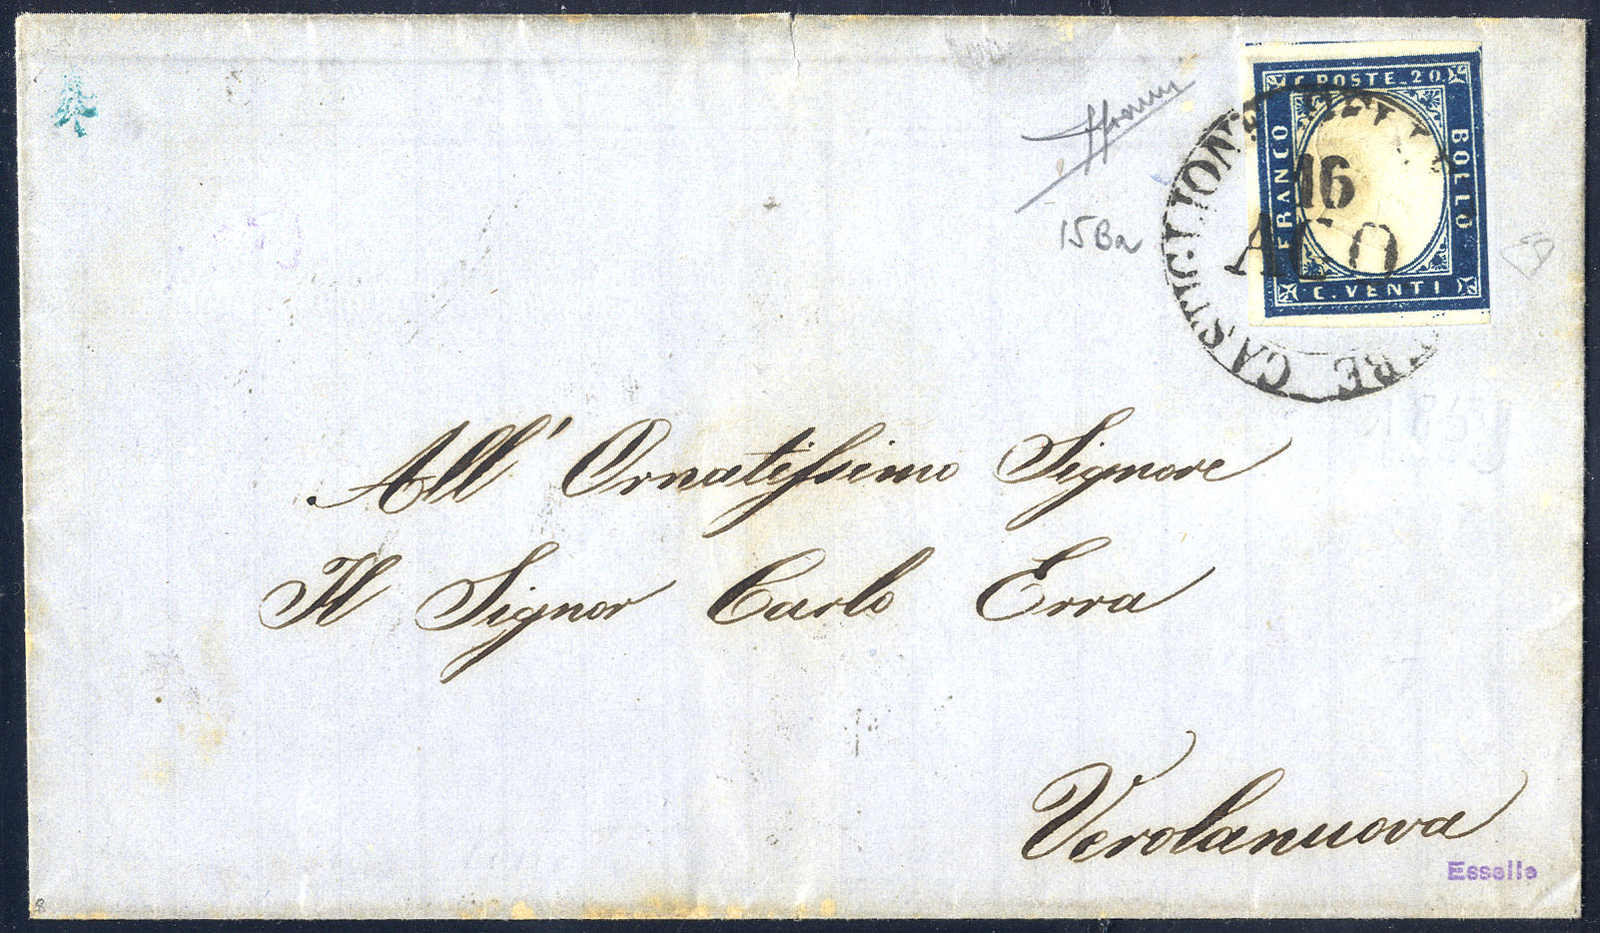 C. POSTE. 20.
FRANCO
BOLLO
C. VENTI
CASTIGLIONE DELLE
16
AGO
15Ba
All' Ornatissimo Signore
Il Signor Carlo Erra
Verolanuova
Esselle